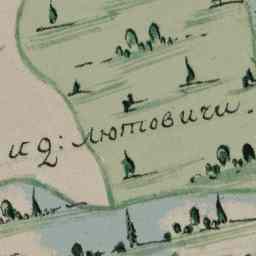 и д: Лютовичи.